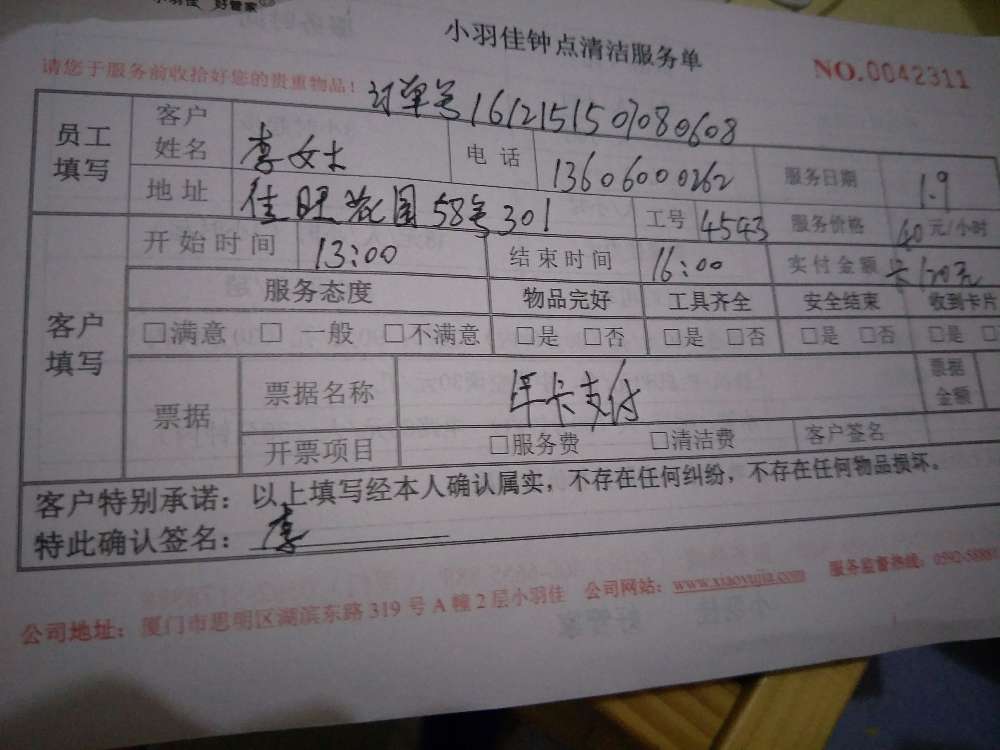 小羽佳 好管家
小羽佳钟点清洁服务单
NO.0042311
请您于服务前收拾好您的贵重物品！
订单号1612151507080608
员工填写 客户姓名 李女士 电话 13606000262 服务日期 1.9
地址 佳旺花园58号301 工号 4543 服务价格 40元/小时
客户填写 开始时间 13:00 结束时间 16:00 实付金额 卡120元
服务态度 物品完好 工具齐全 安全结束 收到卡片
□满意 □一般 □不满意 □是 □否 □是 □否 □是 □否 □是 □
票据 票据名称 年卡支付 票据金额
开票项目 □服务费 □清洁费 客户签名
客户特别承诺：以上填写经本人确认属实，不存在任何纠纷，不存在任何物品损坏。
特此确认签名：李
公司地址：厦门市思明区湖滨东路319号A幢2层小羽佳 公司网站：www.xiaoyujia.com 服务监督热线：0592-5888